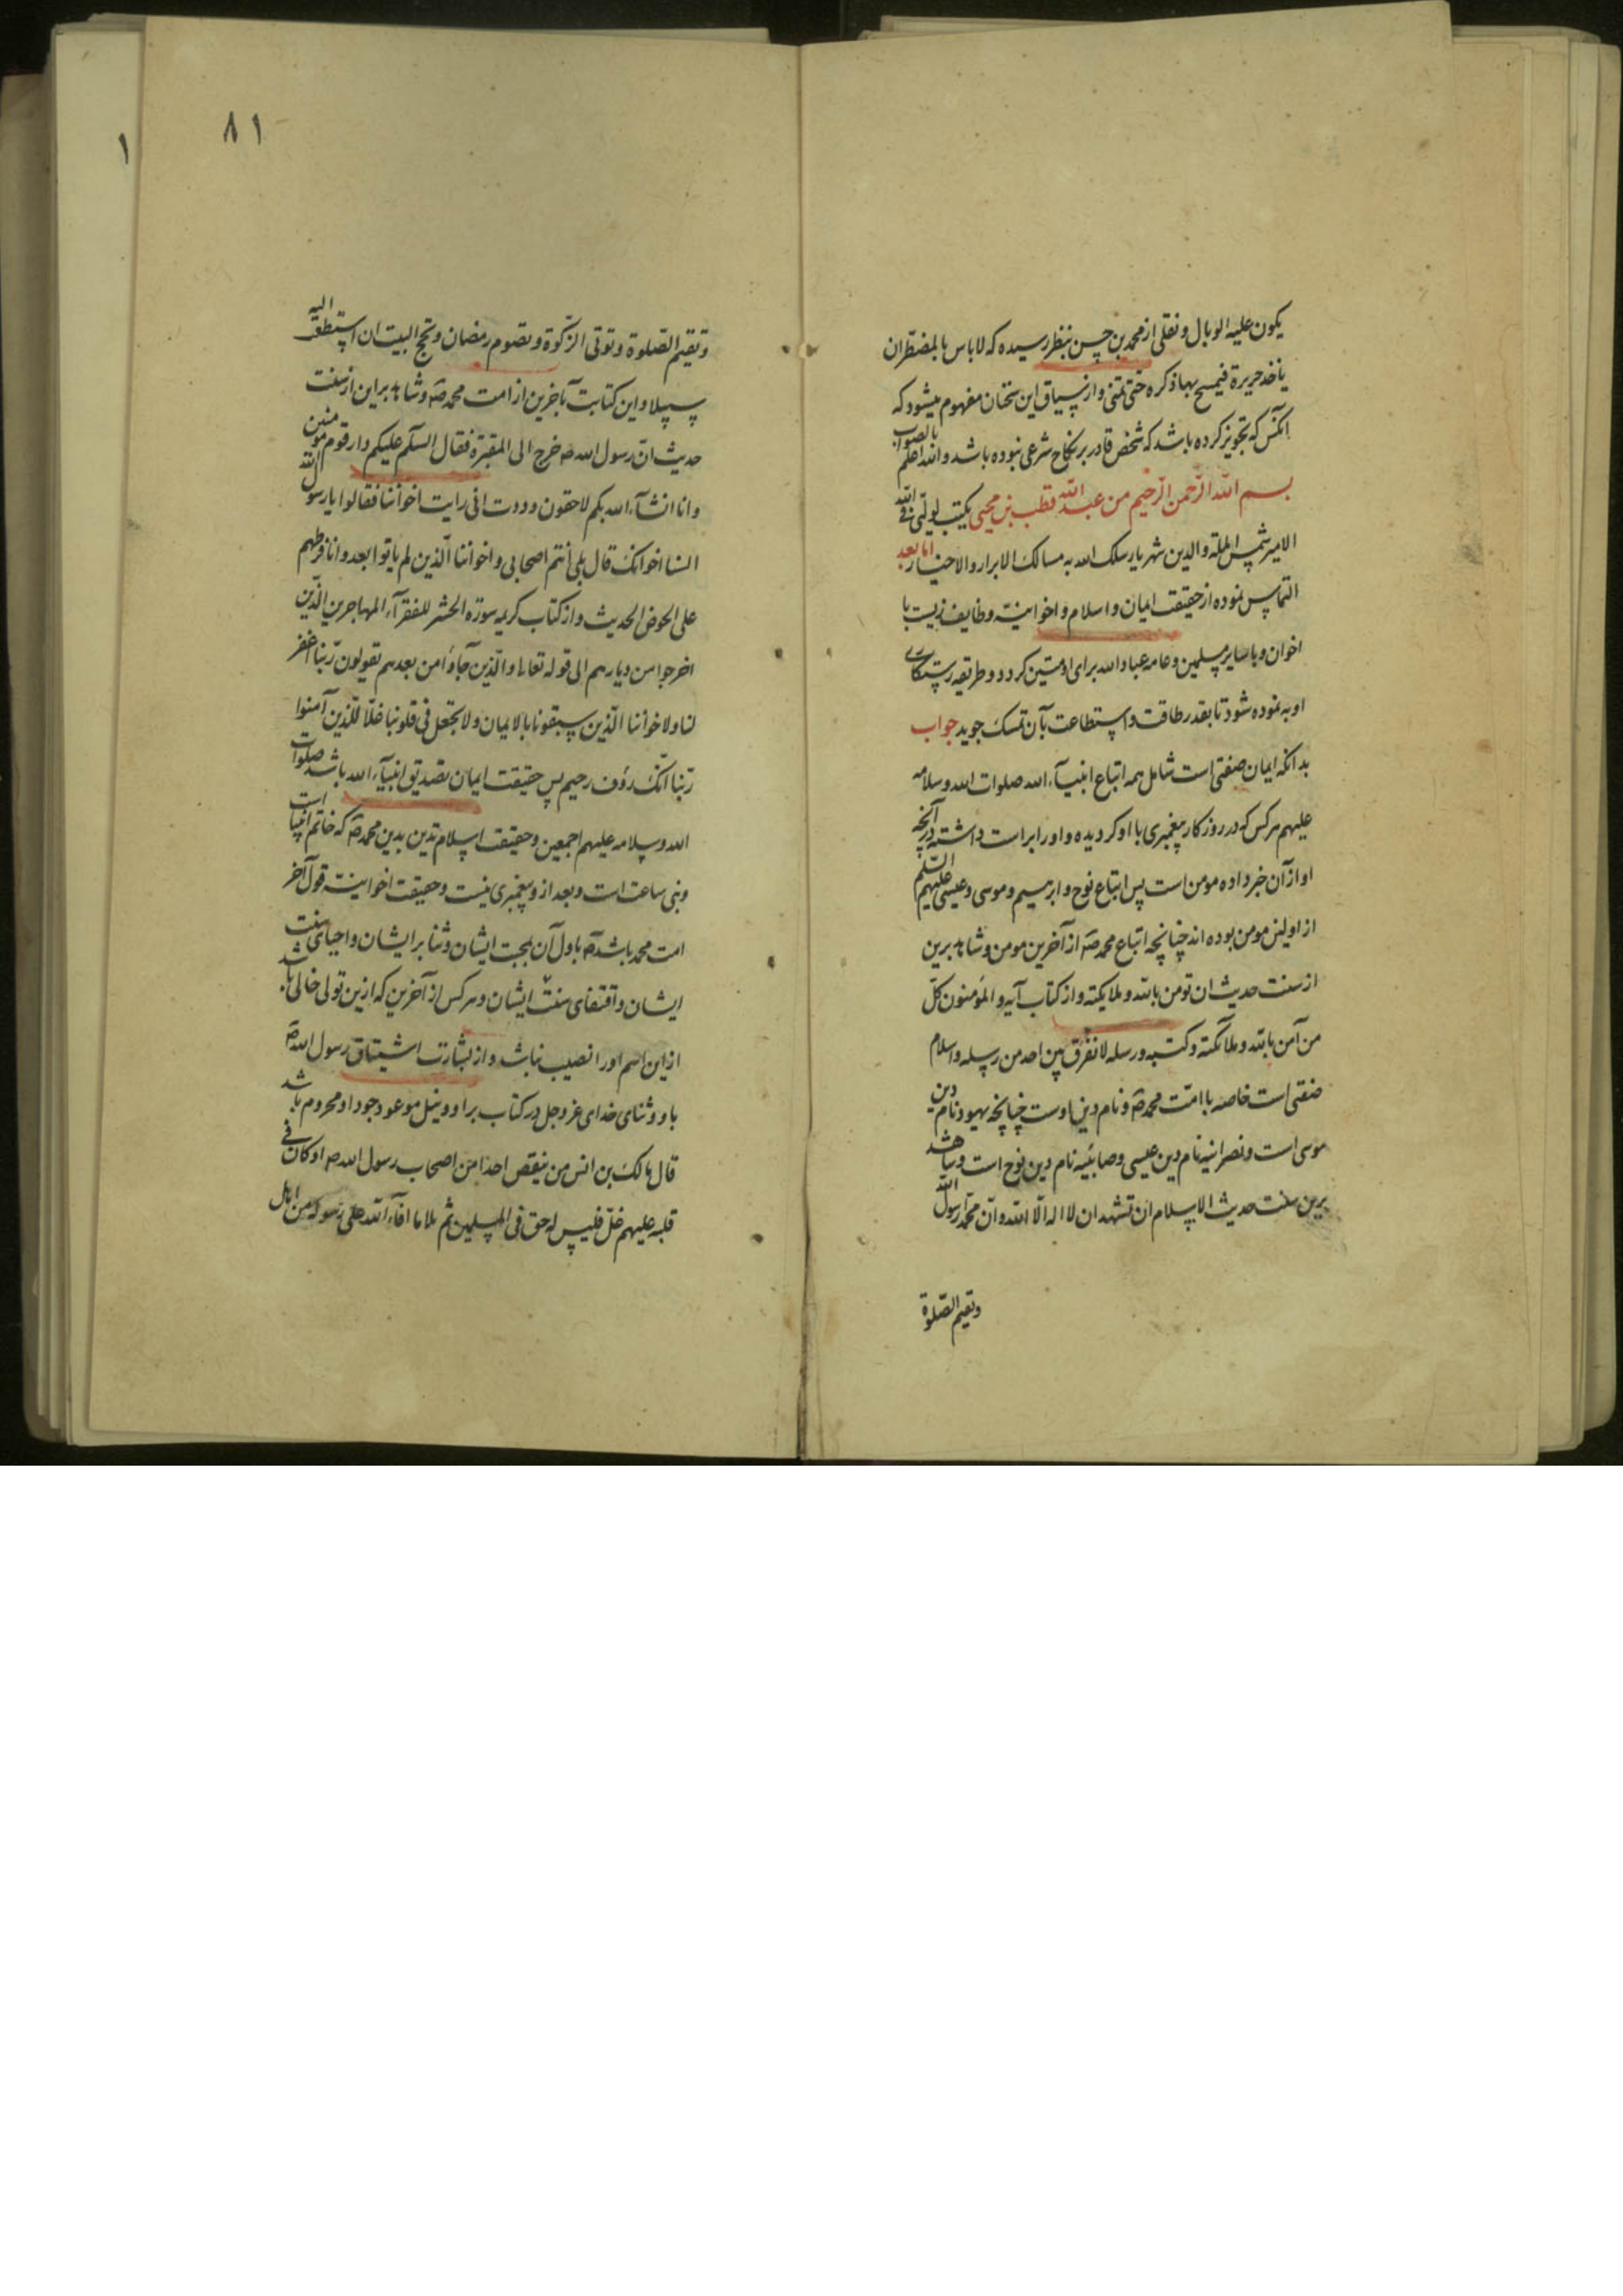 یکون علیه الوبال و نقلی از محمد بن حسن بنظر رسیده که لاباس بالمضطر ان
یاخذ حریرة فیمسح بها ذکره حتی یمنی و از سیاق این سخنان مفهوم میشود که
آنکس که تجویز کرده باشد که شخص قادر بر نکاح شرعی نبوده باشد و الله اعلم بالصواب
بسم الله الرحمن الرحیم من عبد الله قطب بن محیی یکتب لولیی فی الله
الامیر شمس المله و الدین شهریار سلک الله به مسالک الابرار و الاخیار اما بعد
التماس نموده از حقیقت ایمان و اسلام و اخوانیة و وظایف زیست با
اخوان و با سایر مسلمین و عامه عباد الله برای او مبین کردد و طریقه رستکاری
او به نموده شود تا بقدر طاقت و استطاعت بآن تمسک جوید جواب
بدانکه ایمان صفتی است شامل همه اتباع انبیآء الله صلوات الله و سلامه
علیهم هرکس که در روزکار پیغمبری با او کردیده و او را براست داشته در آنچه
او از آن خبر داده مومن است پس اتباع نوح و ابرهیم و موسی و عیسی علیهم السلم
از اولین مومن بوده اند چنانچه اتباع محمد صه از آخرین مومن و شاهد برین
از سنت حدیث ان تومن بالله و ملایکته و از کتاب آیه و المؤمنون کل
من آمن بالله و ملآئکته و کتبه و رسله لا نفرق بین احد من رسله و اسلام
صفتی است خاصه با امت محمد صه و نام دین اوست چنانچه یهود نام دین
موسی است و نصرانیه نام دین عیسی و صابئیه نام دین نوح است و شاهد
برین سنت حدیث الاسلام ان تشهد ان لا اله الا الله و ان محمد رسول الله
و تقیم الصلوة
۸۱
۱
و تقیم الصلوة و توتی الزکوة و تصوم رمضان و تحج البیت ان استطعت الیه
سبیلا و این کتابت بآخرین از امت محمد صه و شاهد براین از سنت
حدیث ان رسول الله صه خرج الی المقبرة فقال السلم علیکم دار قوم مومنین
و انا انشآء الله بکم لاحقون و ددت انی رایت اخواننا فقالوا یا رسول الله
السنا اخوانک قال بلی انتم اصحابی و اخواننا الذین لم یاتوا بعد و انا فرطهم
علی الحوض الحدیث و از کتاب کریمه سوره الحشر للفقرآء المهاجرین الذین
اخرجوا من دیارهم الی قوله تعالی و الذین جاؤا من بعدهم یقولون ربنا اغفر
لنا و لاخواننا الذین سبقونا بالایمان و لا تجعل فی قلوبنا غلا للذین آمنوا
ربنا انک رؤف رحیم پس حقیقت ایمان تصدیق انبیآء الله باشد صلوات
الله و سلامه علیهم اجمعین و حقیقت اسلام تدین بدین محمد صه که خاتم انبیا است
و نبی ساعت است و بعد از و پیغمبری نیست و حقیقت اخوانیة قول آخر
امت محمد باشد صه باول آن بمحبت ایشان و ثنا بر ایشان و احیای سنت
ایشان و اقتفای سنت ایشان و هرکس از آخرین که ازین تولی خالی باشد
از این اسم او را نصیب نباشد و از بشارت اشتیاق رسول الله صه
باو و ثنای خدای عز و جل در کتاب بر او و نیل موعود جود او محروم باشد
قال مالک بن انس من ینقص احدا من اصحاب رسول الله صه او کان فی
قلبه علیهم غل فلیس له حق فی المسلمین ثم تلا ما افآء الله علی رسوله من اهل